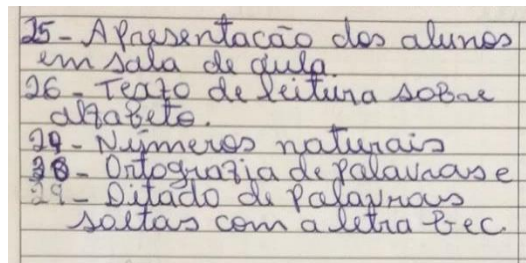 25- Apresentacão dos alunos
em sala de aula
26- Texto de leitura sobre
alfabeto.
27- Números naturais
28- Ortografia de palavras e
29- Ditado de palavras
soltas com a letra b e c.